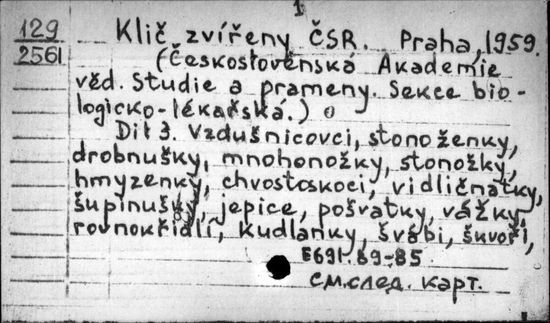 1
129
2561
Klič zvířeny ČSR. Praha, 1959.
(Československá Akademie
věd. Studie a prameny. Sekce bio-
logicko-lékařská.)
Díl 3. Vzdušnicovci, stonoženky,
drobnušky, mnohonožky, stonožky,
hmyzenky, chvostoskoci, vidličnatky,
šupinušky, jepice, pošvatky, vážky,
rovnokřídlí, kudlanky, švábi, škvoři,
E691.69-85
см.след. карт.